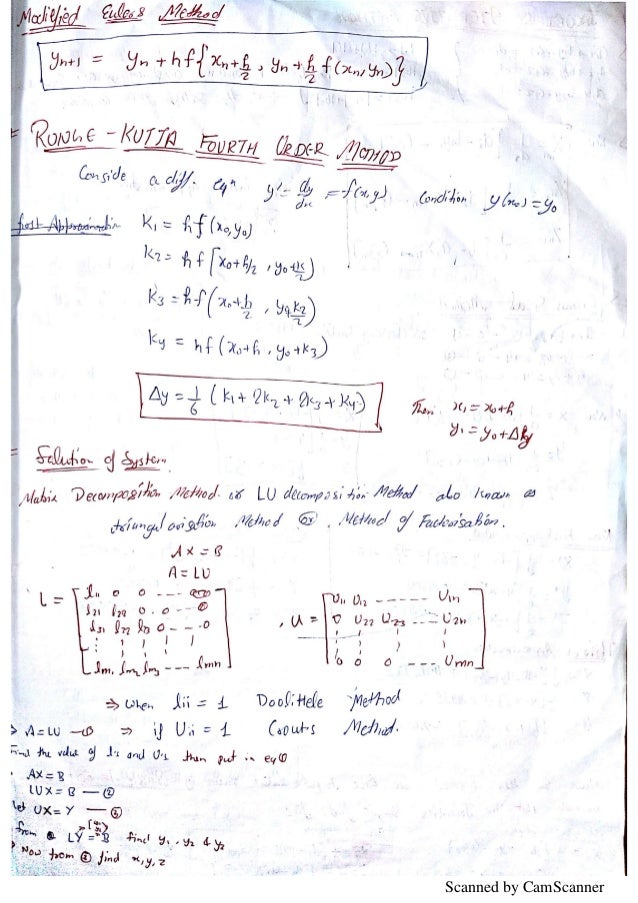 Modified Euler's Method
yn+1 = yn + hf{xn+h/2, yn+h/2 f(xn,yn)}
= RONGE - KUTTA FOURTH ORDER METHOD
Conside a diff. eqn y' = dy/dx = f(x,y) Condition y(x0) = y0
first Approximation K1 = hf(x0,y0)
K2 = hf[x0+h/2, y0+k/2)
K3 = hf(x0+h/2, y0+k2/2)
K4 = hf(x0+h, y0+k3)
Δy = 1/6 (k1 + 2k2 + 2k3 + k4) Then x1 = x0+h
y1 = y0+Δy
= Solution of System
Matrix Decomposition Method or LU decomposition Method also known as
triangularisation Method or Method of Factorisation.
AX = B
A = LU
L = [l11 0 0 --- 0
l21 l22 0 . 0 --- 0
l31 l32 l33 0 --- 0
lm1 lm2 lm3 --- lmn]
, U = [U11 U12 ------ U1n
0 U22 U23 --- U2n
0 0 0 --- Umn]
⇒ When lii = 1 Doolittele Method
> A=LU —① ⇒ if Uii = 1 Crout's Method.
Find the value of l's and U's then put in eq①
AX = B
LUX = B —②
let UX = Y —③
from ② LY = B find y1, y2 & y3
> Now from ③ find x,y,z
Scanned by CamScanner